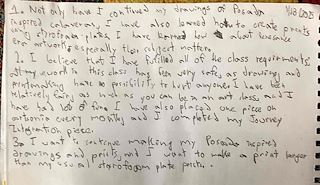 1. Not only have I continued my drawings of Posada
inspired calaveras, I have also learned how to create prints
using styrofoam plates. I have learned how about
era artworks, especially their subject matter.
2. I believe that I have fulfilled all of the class requirements.
all my work in this class has been very safe, as drawing, and
printmaking have no possibility to hurt anyone. I have been
relatively fair as much as you can be in an art class, and I
have had lots of fun. I have also placed one piece on
artsonia every month, and I completed my Journey
Integration piece.
3. I want to continue making my Posada inspired
drawings and prints, and I want to make a print larger
than my usual styrofoam plate prints.